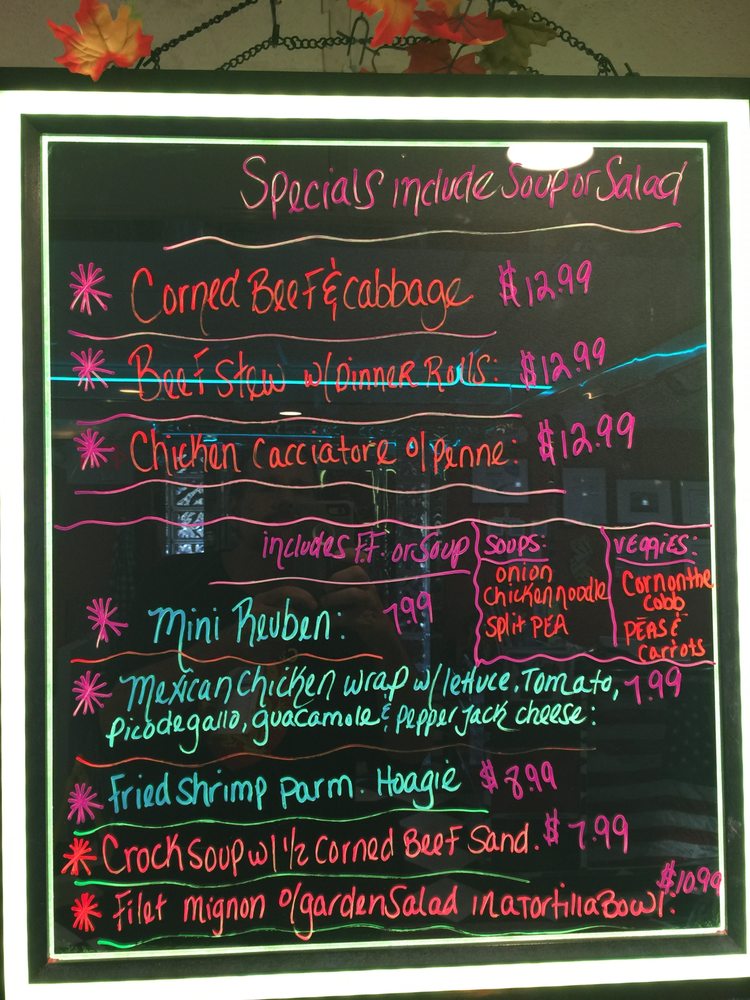 Specials include Soup or Salad
Corned Beef & Cabbage $12.99
Beef Stew w/ Dinner Rolls: $12.99
Chicken Cacciatore o/ Penne: $12.99
includes F.F. or Soup
Mini Reuben: 7.99
Soups:
onion
Chicken noodle
Split Pea
Veggies:
Corn on the
Cobb
Peas &
Carrots
Mexican Chicken wrap w/ lettuce, Tomato, 7.99
Pico de gallo, guacamole & Pepper Jack cheese:
Fried Shrimp Parm. Hoagie $8.99
Crock Soup w/ 1/2 Corned Beef Sand. $7.99
Filet mignon o/ garden Salad in a Tortilla Bowl: $10.99